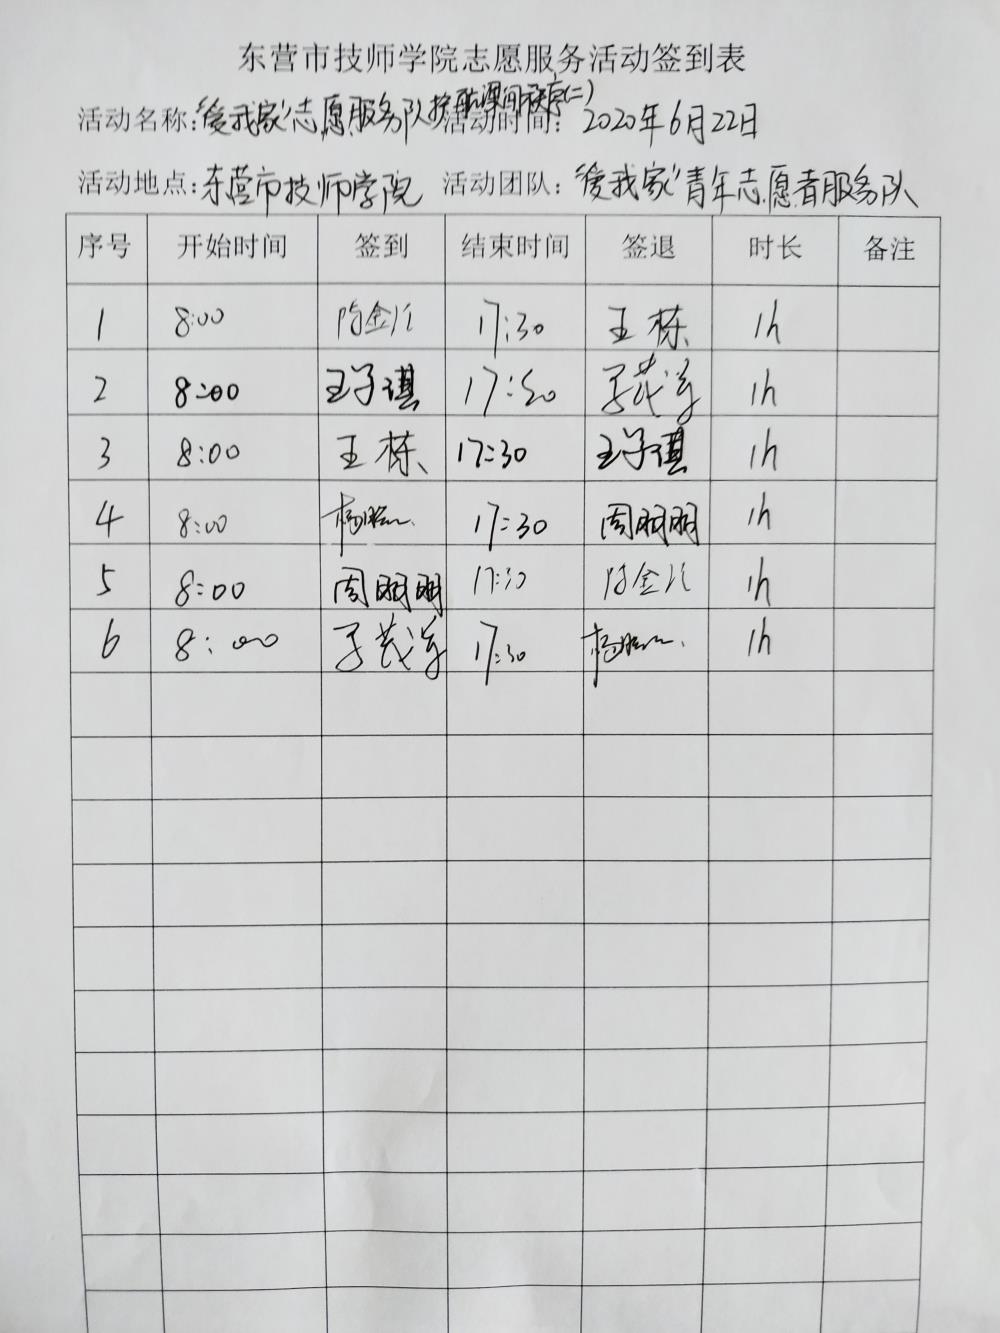 东营市技师学院志愿服务活动签到表
活动名称:"爱我家"志愿服务队护航课间秩序(二) 活动时间: 2020年6月22日
活动地点:东营市技师学院 活动团队:"爱我家"青年志愿者服务队
序号 开始时间 签到 结束时间 签退 时长 备注
1 8:00 17:30 王栋 1h
2 8:00 王子琪 17:50 1h
3 8:00 王栋 17:30 王子琪 1h
4 8:00 17:30 周明明 1h
5 8:00 周明明 17:30 1h
6 8:00 17:30 1h